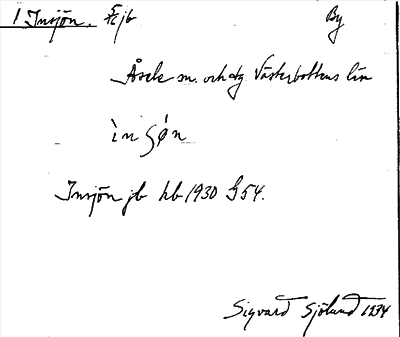 1 Insjön. By
Åsele sn. och tg Västerbottens län
ìnʂǿn
Insjön jb hb 1930 G54.
Sigvard Sjölund 1934